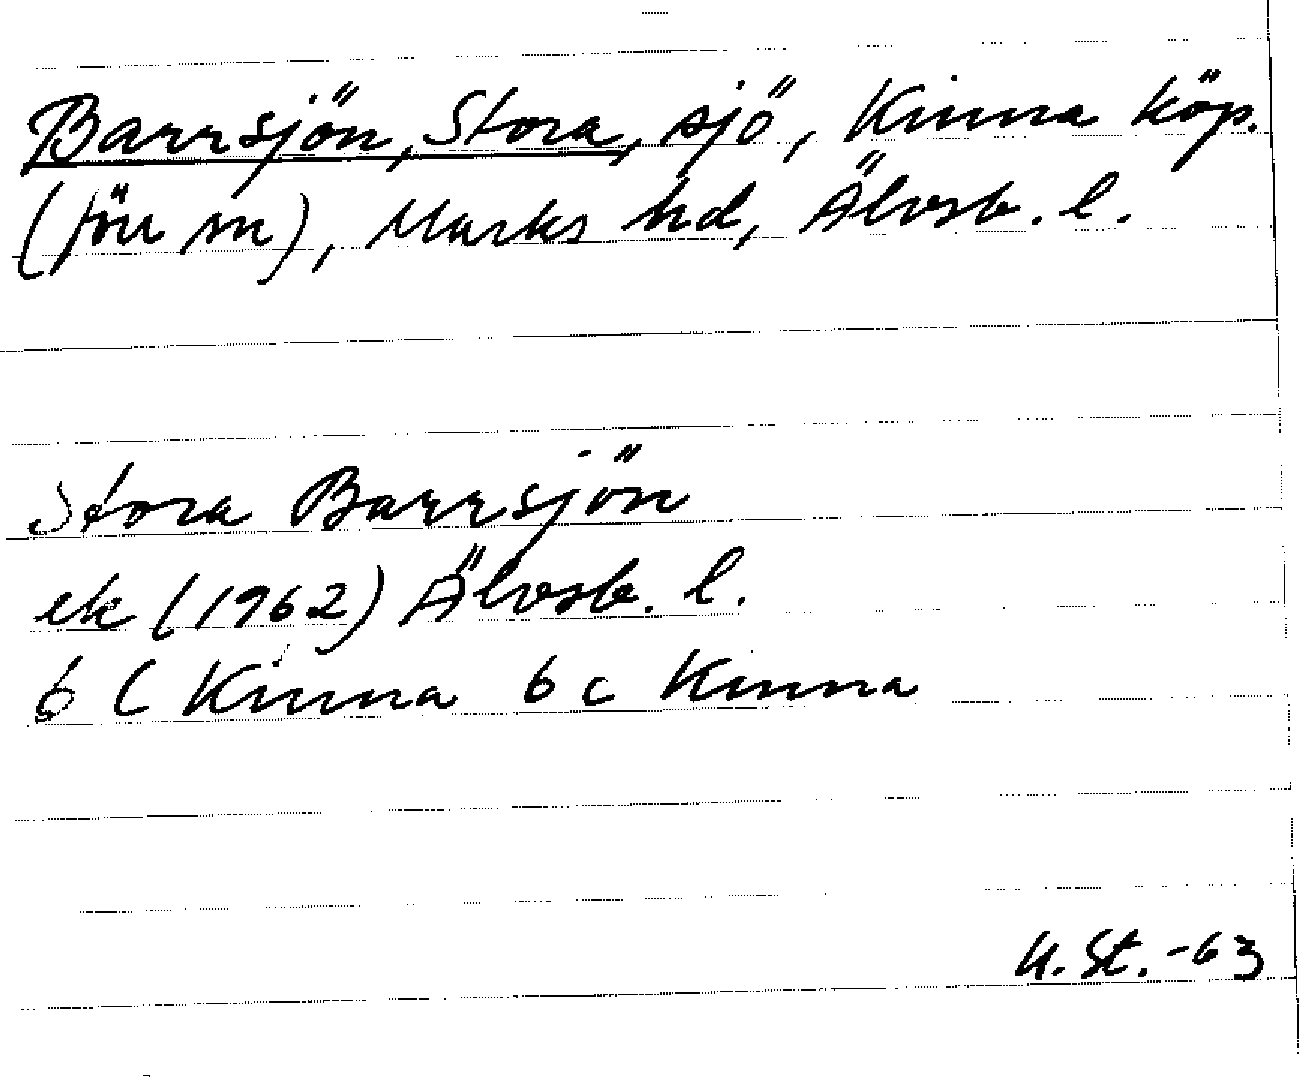 Barrsjön, Stora, sjö, Kinna köp.
(förr sn), Marks hd, Älvsb. l.
Stora Barrsjön
ek (1962) Älvsb. l.
6 C Kinna 6 c Kinna
U. St. -63